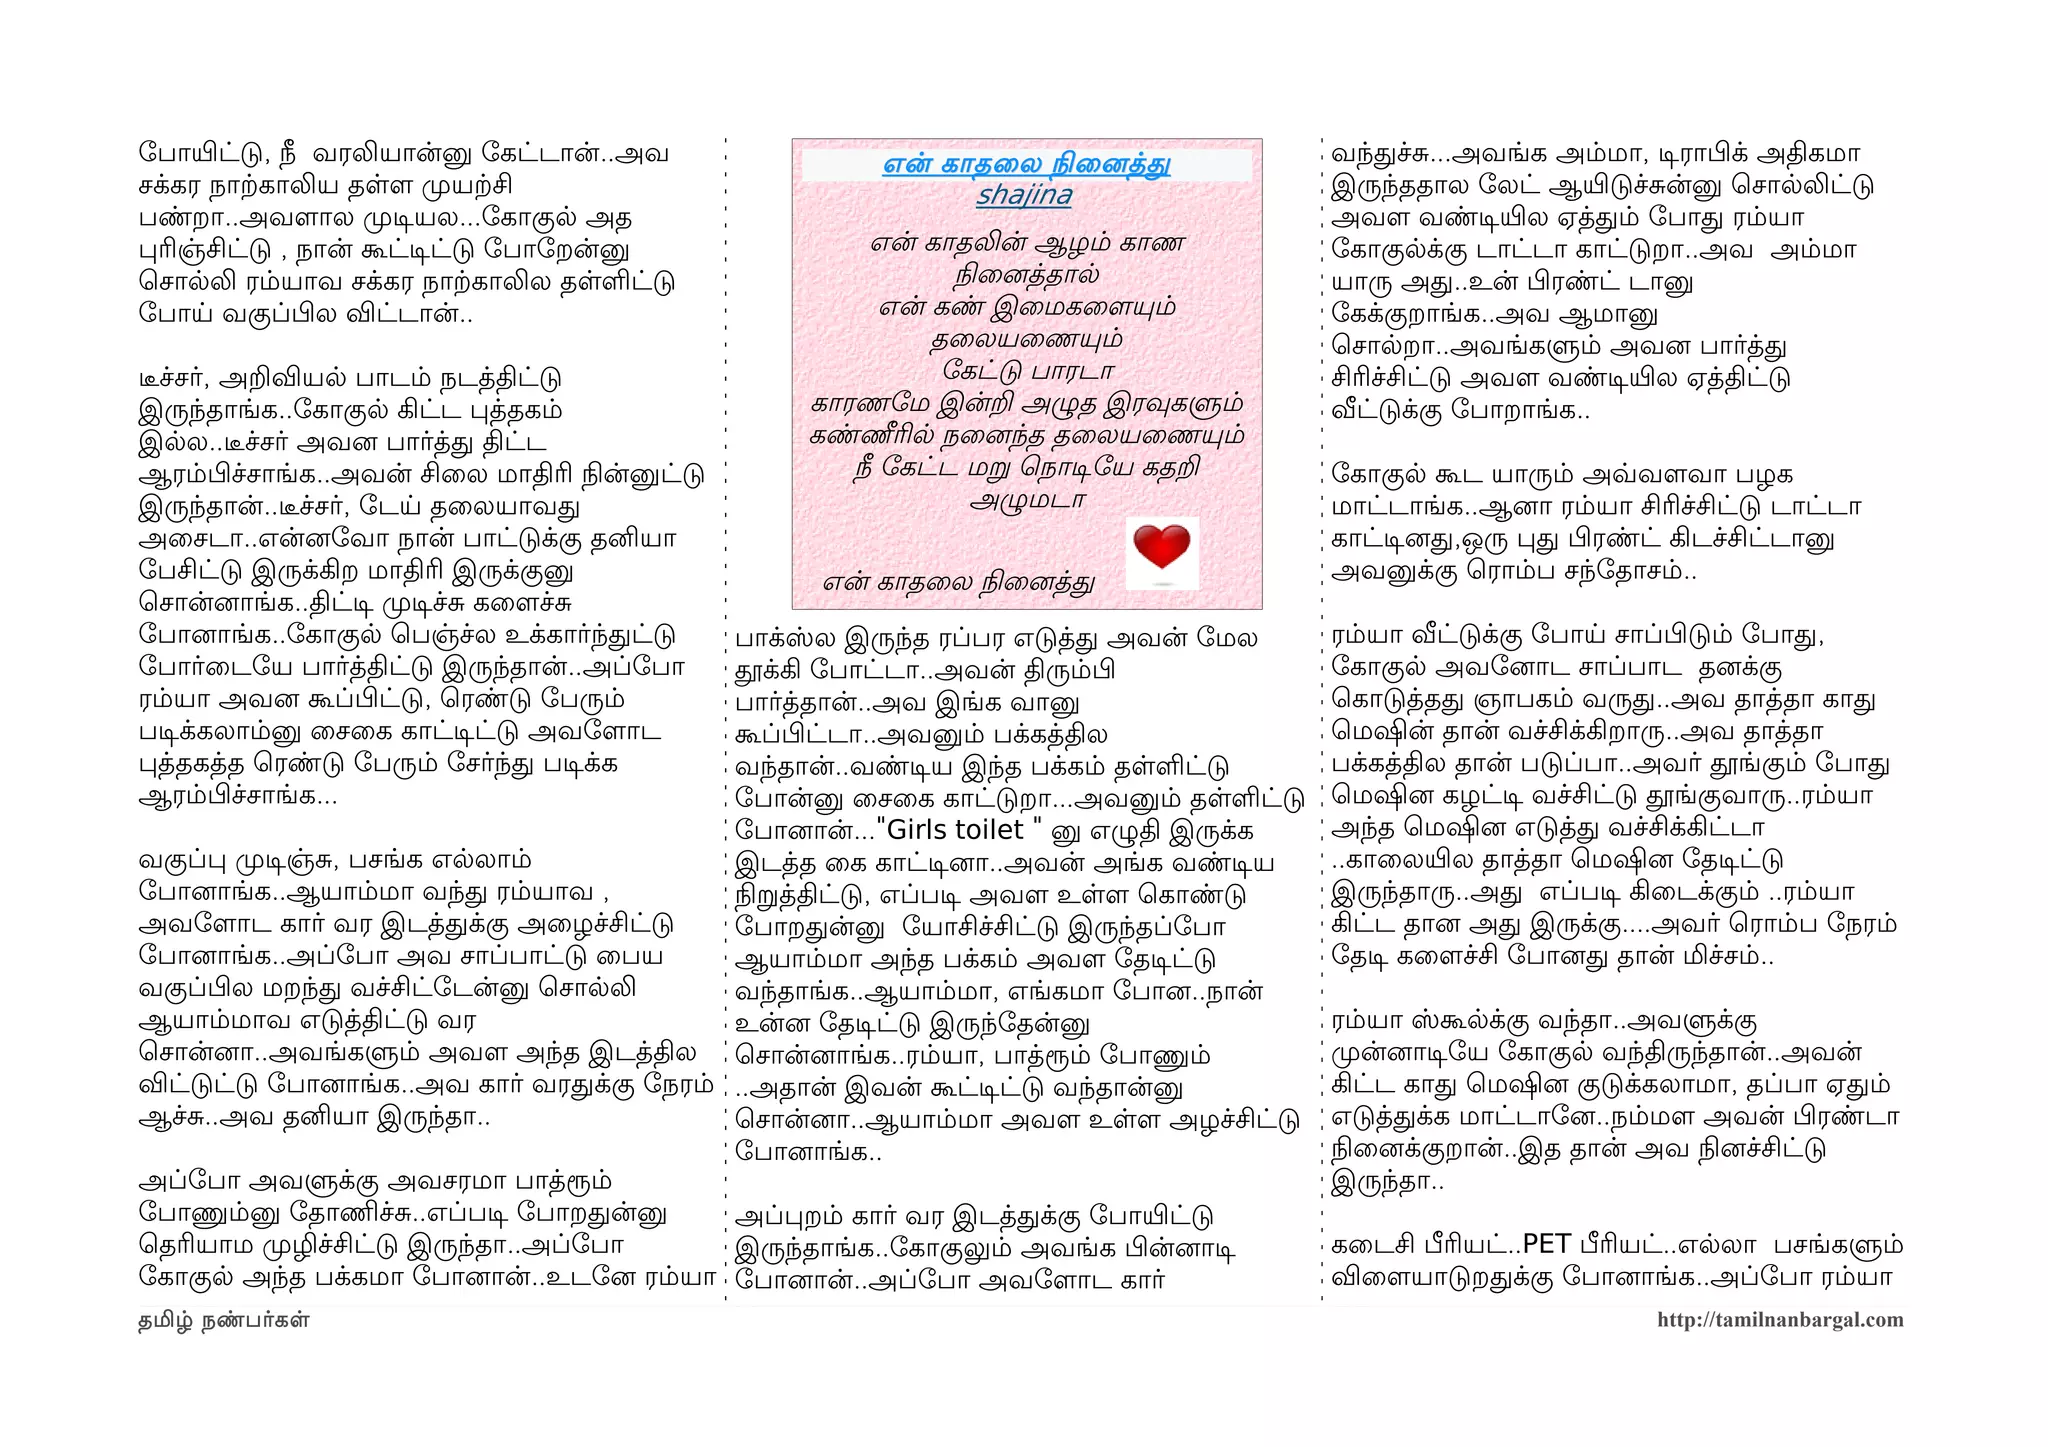 போயிட்டு, நீ  வரலியான்னு கேட்டான்..அவ
சக்கர நாற்காலிய தள்ள முயற்சி
பண்றா..அவளால முடியல...கோகுல் அத
புரிஞ்சிட்டு , நான் கூட்டிட்டு போறேன்னு
சொல்லி ரம்யாவ சக்கர நாற்காலில தள்ளிட்டு
போய் வகுப்பில விட்டான்..
டீச்சர், அறிவியல் பாடம் நடத்திட்டு
இருந்தாங்க..கோகுல் கிட்ட புத்தகம்
இல்ல..டீச்சர் அவன பார்த்து திட்ட
ஆரம்பிச்சாங்க..அவன் சிலை மாதிரி நின்னுட்டு
இருந்தான்..டீச்சர், டேய் தலையாவது
அசைடா..என்னவோ நான் பாட்டுக்கு தனியா
பேசிட்டு இருக்கிற மாதிரி இருக்குனு
சொன்னாங்க..திட்டி முடிச்சு களைச்சு
போனாங்க..கோகுல் பெஞ்ச்ல உக்கார்ந்துட்டு
போர்டையே பார்த்திட்டு இருந்தான்..அப்போ
ரம்யா அவன கூப்பிட்டு, ரெண்டு பேரும்
படிக்கலாம்னு சைகை காட்டிட்டு அவளோட
புத்தகத்த ரெண்டு பேரும் சேர்ந்து படிக்க
ஆரம்பிச்சாங்க...
வகுப்பு முடிஞ்சு, பசங்க எல்லாம்
போனாங்க..ஆயாம்மா வந்து ரம்யாவ ,
அவளோட கார் வர இடத்துக்கு அழைச்சிட்டு
போனாங்க..அப்போ அவ சாப்பாட்டு பைய
வகுப்பில மறந்து வச்சிட்டேன்னு சொல்லி
ஆயாம்மாவ எடுத்திட்டு வர
சொன்னா..அவங்களும் அவள அந்த இடத்தில
விட்டுட்டு போனாங்க..அவ கார் வரதுக்கு நேரம்
ஆச்சு..அவ தனியா இருந்தா..
அப்போ அவளுக்கு அவசரமா பாத்ரூம்
போணும்னு தோணிச்சு..எப்படி போறதுன்னு
தெரியாம முழிச்சிட்டு இருந்தா..அப்போ
கோகுல் அந்த பக்கமா போனான்..உடனே ரம்யா
என் காதலை நினைத்து
shajina
என் காதலின் ஆழம் காண
நினைத்தால்
என் கண் இமைகளையும்
தலையணையும்
கேட்டு பாரடா
காரணமே இன்றி அழுத இரவுகளும்
கண்ணீரில் நனைந்த தலையணையும்
நீ கேட்ட மறு நொடியே கதறி
அழுமடா
என் காதலை நினைத்து
பாக்ஸ்ல இருந்த ரப்பர எடுத்து அவன் மேல
தூக்கி போட்டா..அவன் திரும்பி
பார்த்தான்..அவ இங்க வானு
கூப்பிட்டா..அவனும் பக்கத்தில
வந்தான்..வண்டிய இந்த பக்கம் தள்ளிட்டு
போன்னு சைகை காட்டுறா...அவனும் தள்ளிட்டு
போனான்..."Girls toilet " னு எழுதி இருக்க
இடத்த கை காட்டினா..அவன் அங்க வண்டிய
நிறுத்திட்டு, எப்படி அவள உள்ள கொண்டு
போறதுன்னு  யோசிச்சிட்டு இருந்தப்போ
ஆயாம்மா அந்த பக்கம் அவள தேடிட்டு
வந்தாங்க..ஆயாம்மா, எங்கமா போன..நான்
உன்ன தேடிட்டு இருந்தேன்னு
சொன்னாங்க..ரம்யா, பாத்ரூம் போணும்
..அதான் இவன் கூட்டிட்டு வந்தான்னு
சொன்னா..ஆயாம்மா அவள உள்ள அழச்சிட்டு
போனாங்க..
அப்புறம் கார் வர இடத்துக்கு போயிட்டு
இருந்தாங்க..கோகுலும் அவங்க பின்னாடி
போனான்..அப்போ அவளோட கார்
வந்துச்சு...அவங்க அம்மா, டிராபிக் அதிகமா
இருந்ததால லேட் ஆயிடுச்சுன்னு சொல்லிட்டு
அவள வண்டியில ஏத்தும் போது ரம்யா
கோகுல்க்கு டாட்டா காட்டுறா..அவ  அம்மா
யாரு அது..உன் பிரண்ட் டானு
கேக்குறாங்க..அவ ஆமானு
சொல்றா..அவங்களும் அவன பார்த்து
சிரிச்சிட்டு அவள வண்டியில ஏத்திட்டு
வீட்டுக்கு போறாங்க..
கோகுல் கூட யாரும் அவ்வளவா பழக
மாட்டாங்க..ஆனா ரம்யா சிரிச்சிட்டு டாட்டா
காட்டினது,ஒரு புது பிரண்ட் கிடச்சிட்டானு
அவனுக்கு ரொம்ப சந்தோசம்..
ரம்யா வீட்டுக்கு போய் சாப்பிடும் போது,
கோகுல் அவனோட சாப்பாட  தனக்கு
கொடுத்தது ஞாபகம் வருது..அவ தாத்தா காது
மெஷின் தான் வச்சிக்கிறாரு..அவ தாத்தா
பக்கத்தில தான் படுப்பா..அவர் தூங்கும் போது
மெஷின கழட்டி வச்சிட்டு தூங்குவாரு..ரம்யா
அந்த மெஷின எடுத்து வச்சிக்கிட்டா
..காலையில தாத்தா மெஷின தேடிட்டு
இருந்தாரு..அது  எப்படி கிடைக்கும் ..ரம்யா
கிட்ட தான அது இருக்கு....அவர் ரொம்ப நேரம்
தேடி களைச்சி போனது தான் மிச்சம்..
ரம்யா ஸ்கூல்க்கு வந்தா..அவளுக்கு
முன்னாடியே கோகுல் வந்திருந்தான்..அவன்
கிட்ட காது மெஷின குடுக்கலாமா, தப்பா ஏதும்
எடுத்துக்க மாட்டானே..நம்மள அவன் பிரண்டா
நினைக்குறான்..இத தான் அவ நினச்சிட்டு
இருந்தா..
கடைசி பீரியட்..PET பீரியட்..எல்லா  பசங்களும்
விளையாடுறதுக்கு போனாங்க..அப்போ ரம்யா
தமிழ் நண்பர்கள்
http://tamilnanbargal.com